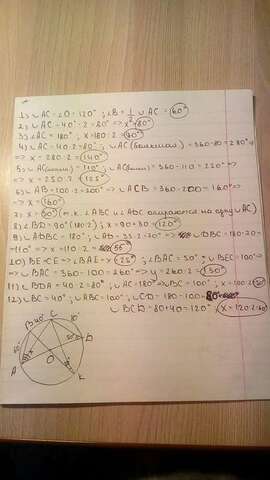 1) ∪AC = ∠O = 120°; ∠B = 1/2 ∪AC = 60°
2) ∪AC = 40°·2 = 80° => x = 80°
3) ∪AC = 180°; x = 180:2 = 90°
4) ∪AC = 40·2 = 80°; ∪AC (большая) = 360-80 = 280° =>
=> x = 280:2 = 140°
5) ∪AC (малая) = 110°; ∪AC (большая) = 360-110 = 250° =>
=> x = 250:2 = 125°
6) ∪AB = 100·2 = 200° => ∪ACB = 360-200 = 160° =>
=> x = 160°
7) x = 50° (т.к. ∠ABC и ∠ADC опираются на одну ∪AC)
8) ∠BD = 90° (180:2); x = 90+30 = 120°
9) ∪DBC = 180°; ∪AD = 35·2 = 70° => ∪DBC = 180-70 =
= 110° => x = 110:2 = 55°
10) BE = CE => ∠BAE = x = 25°; ∠BAC = 50° => ∪BEC = 100° =>
=> ∪BAC = 360-100 = 260° => y = 260:2 = 130°
11) ∪BDA = 40·2 = 80°; ∪AC = 180° => ∪BC = 100°; x = 100:2 = 50°
12) ∪BC = 40°; ∪ABC = 100°; ∪CD = 180-100 = 80°
∪BCD = 80+40 = 120°; x = 120:2 = 60
B 40° C 80°
D
A O
K